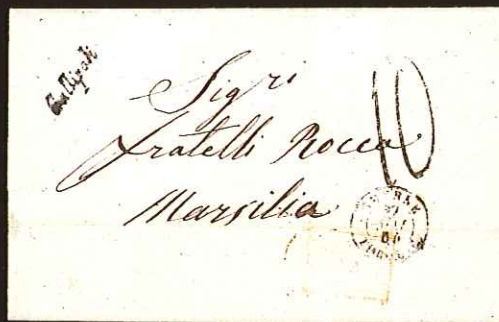 Gallipoli
Sig.ri
fratelli Rocca
Marsilia
10